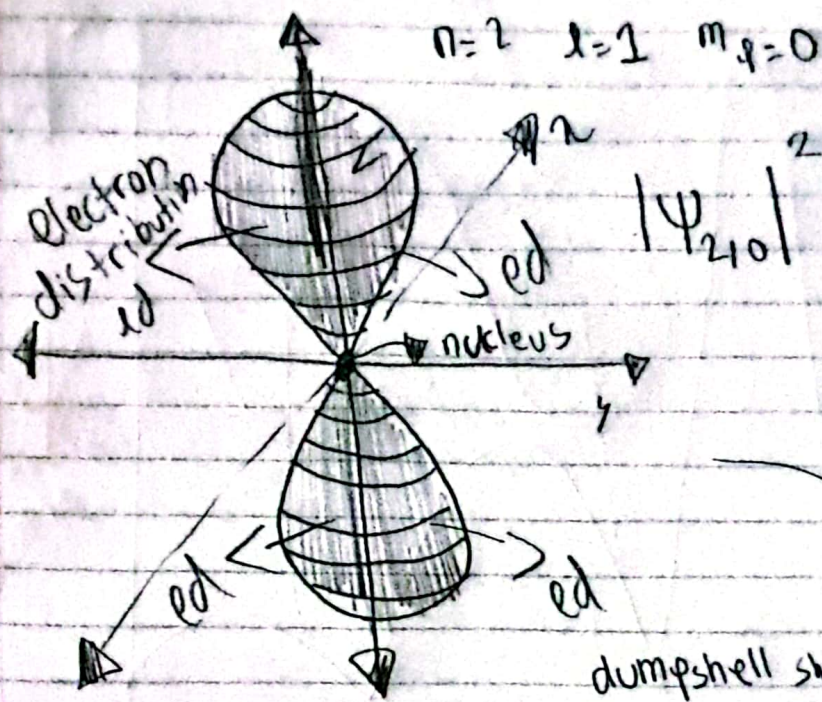 n=2 l=1 m_l=0
z
x
|Ψ₂₁₀|²
electron
distributin
ed
ed
nucleus
y
ed
ed
dumpshell sh